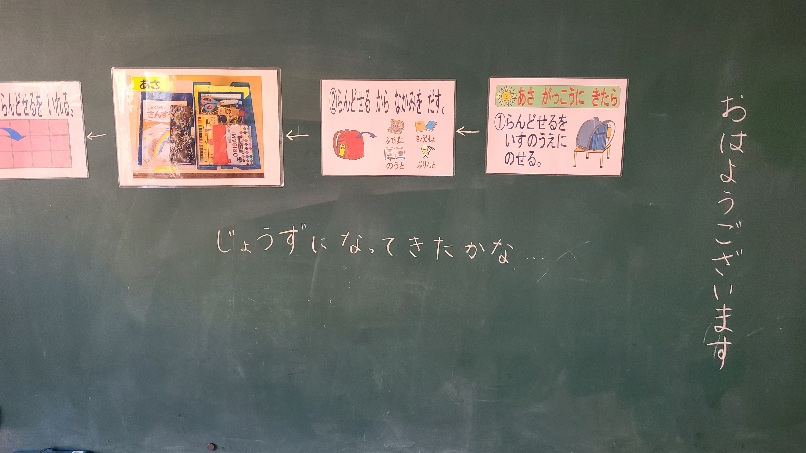 おはようございます
あさ がっこうに きたら
①らんどせるを
いすのうえに
のせる。
②らんどせる から なかみを だす。
のうと
あさ
さんす
らんどせるを いれる。
じょうずになってきたかな…